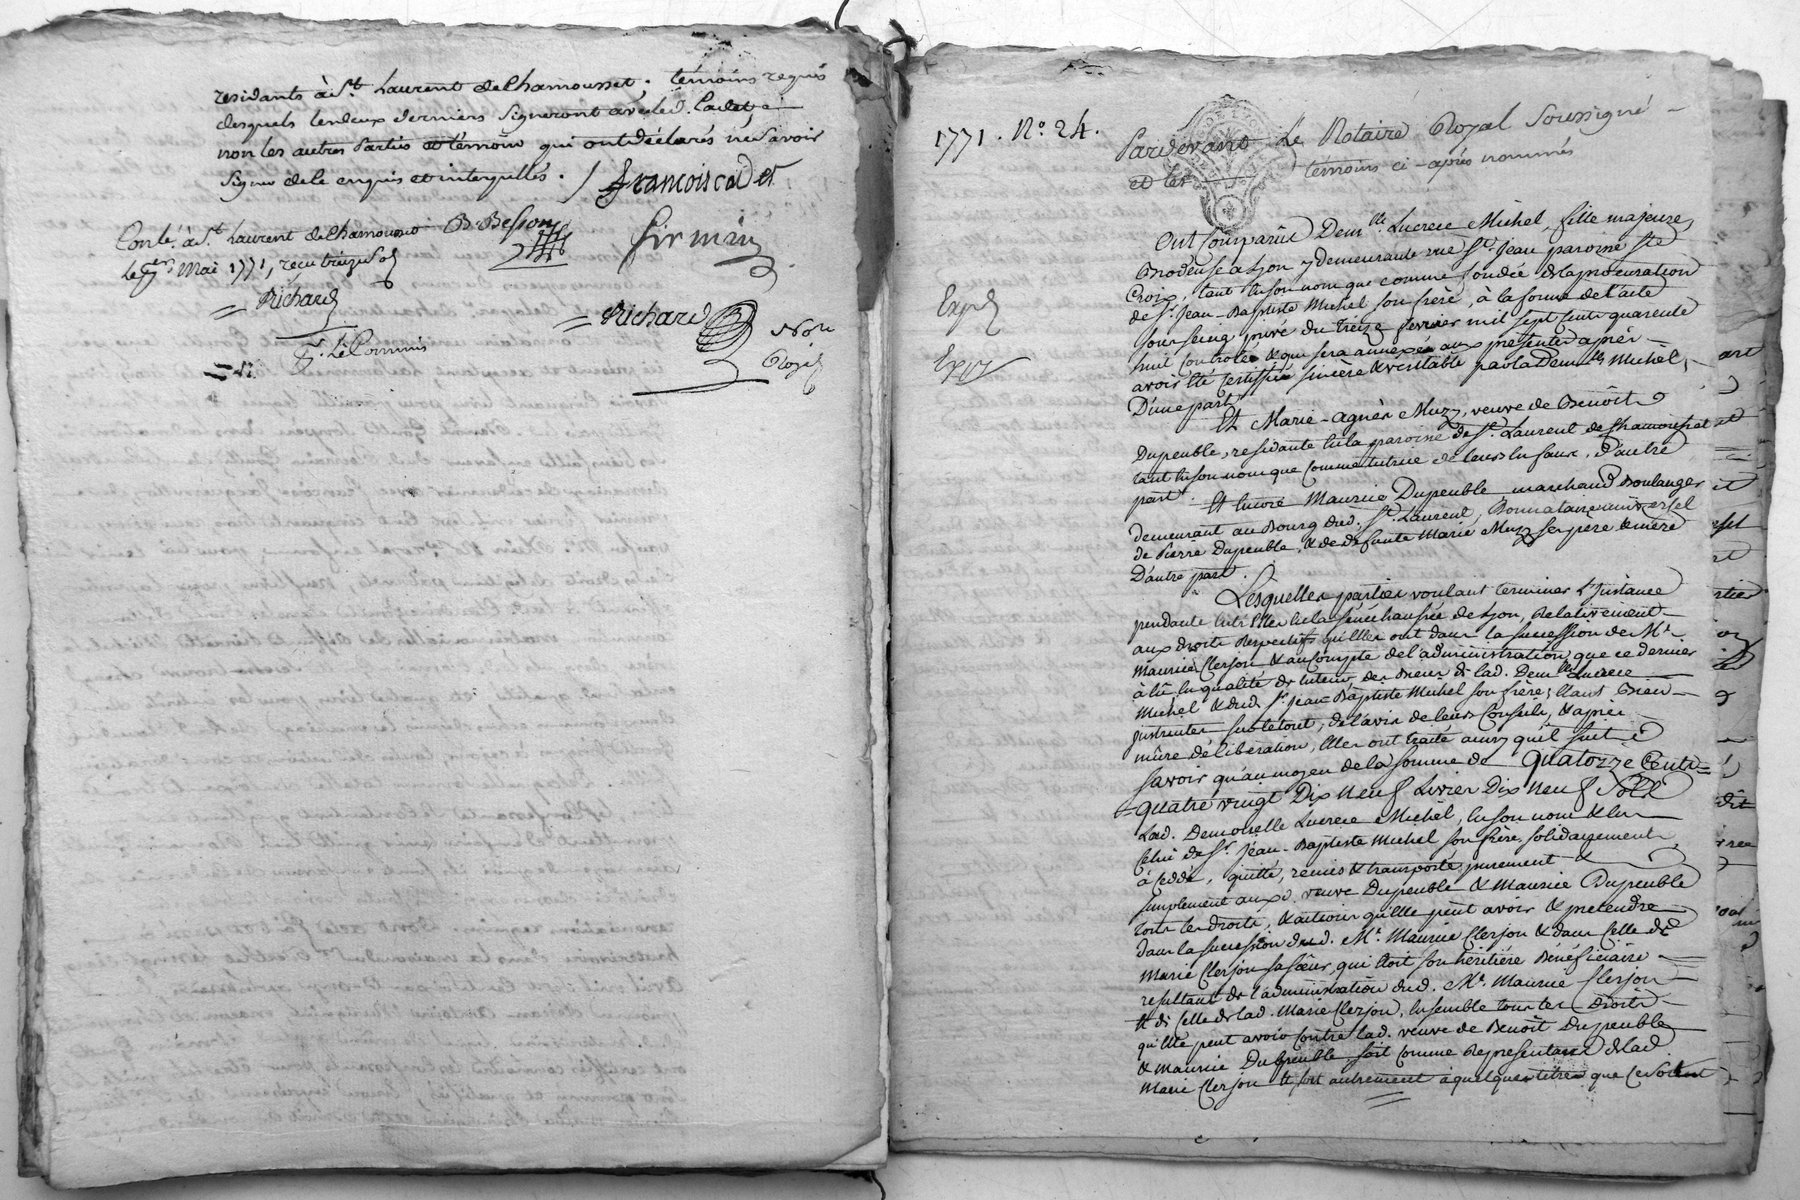 residants à St. Laurent de Chamousset ; témoins requis
desquels les deux derniers signeront avec led. Cadet, &
non les autres parties et témoin qui ont déclarés ne savoir
signer de ce enquis et interpellés. /. francois cadet
Conlé. à St. Laurent de Chamousset B. Besson firmin
Le Mai 1771, reçu treize sol
= Richard = Richard Nore
Royal
f. Le Commis
1771. No. 24. Pardevant Le Notaire Royal Soussigné
et les témoins ci-après nommés
Ont Comparût Demlle. Lucrece Michel, fille majeure,
Brodeuse a Lyon y demeurante rue St. Jean paroisse Ste
Croix, tant en son nom que comme fondée de la procuration
Expd
de Sr. Jean-Baptiste Michel son frère, à la forme de l'acte
sous seing privé du treize fevrier mil sept cents quarente
Expé
huit controlée & qui sera annexée aux presentes après
avoir été certiffiée sincere & veritable par la Demlle Michel,
D'une part.
Et Marie-agnès Muzy, veuve de Benoît
Dupeuble, residante en la paroisse de St. Laurent de Chamousset
tant en son nom que comme tutrice de leurs enfans, d'autre
part.
Et encore Maurice Dupeuble marchand Boulanger
demeurant au Bourg dud. St. Laurent, Donnataire universel
de Pierre Dupeuble, & de defunte Marie Muzy ses pere & mere
D'autre part.
Lesquelles parties voulant terminer l'Instance
pendante entr'Elles en la senechaussée de Lyon, Relativement
aux droits Respectifs qu'Elles ont dans la succession de Me.
Maurice Clerjon & au Compte de l'administration que ce dernier
à eû en qualité de tuteur, des Biens de lad. Demlle Lucrece
Michel & dud. Sr. Jean-Baptiste Michel son frère; Etant Bien
justruites sur le tout, de l'avis de leurs Conseils, & après
mûre délibération, Elles ont traité ainsy qu'il suit
Savoir qu'au moyen de la somme de Quatorze Cents
quatre vingt Dix neuf Livres Dix neuf Sols
Lad. Demoiselle Lucrece Michel, en son nom & en
Celui de Sr. Jean-Baptiste Michel son frère solidairement,
à cedde, quitté, remis & transporté purement &
simplement auxd. veuve Dupeuble & Maurice Dupeuble
tous les droits, & actions qu'Elle peût avoir & pretendre
dans la succession dud. Me. Maurice Clerjon & dans Celle de
Marie Clerjon sa sœur, qui Etoit son héritière Bénéficiaire
resultant de l'administration dud. Me. Maurice Clerjon
Et de Celle de lad. Marie Clerjon, ensemble tous les Droits
qu'Elle peut avoir Contre lad. veuve de Benoît Dupeuble
& Maurice Dupeuble soit Comme Representans de lad
Marie Clerjon & soit autrement à quelques titres que ce soient